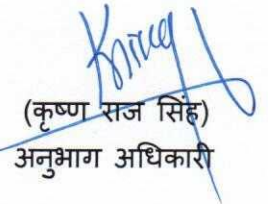 (कृष्ण राज सिंह)
अनुभाग अधिकारी